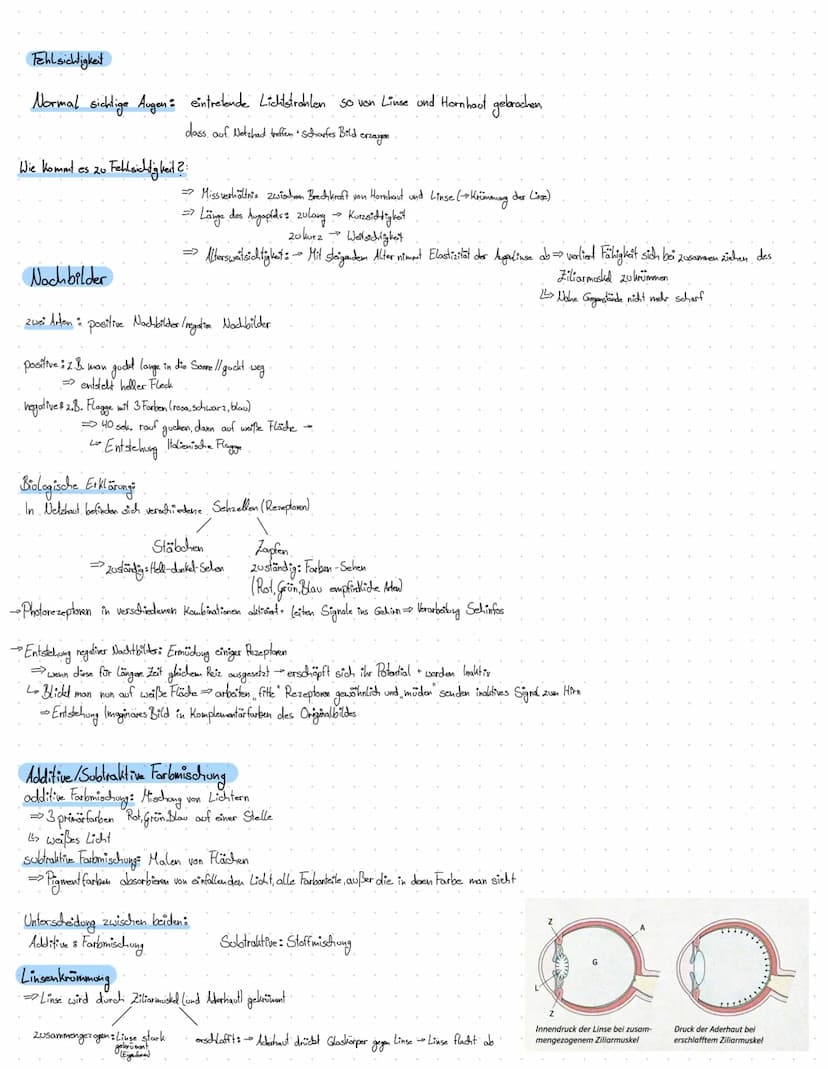 Fehlsichtigkeit
Normal sichtige Augen: eintretende Lichtstrahlen so von Linse und Hornhaut gebrochen,
dass auf Netzhaut treffen + scharfes Bild erzeugen
Wie kommt es zu Fehlsichtigkeit?:
=> Missverhältnis zwischen Brechkraft von Hornhaut und Linse (→ Krümmung der Linse)
=> Länge des Augapfels: zu lang → Kurzsichtigkeit
zu kurz → Weitsichtigkeit
=> Altersweitsichtigkeit: → Mit steigendem Alter nimmt Elastizität der Augenlinse ab => verliert Fähigkeit sich bei zusammen ziehen des
Ziliarmuskel zu krümmen
↳ Nahe Gegenstände nicht mehr scharf
Nachbilder
zwei Arten: positive Nachbilder/negative Nachbilder
positive: z.B. man guckt lange in die Sonne // guckt weg
=> entsteht heller Fleck
negative: z.B. Flagge mit 3 Farben (rosa, schwarz, blau)
=> 40 sek. rauf gucken, dann auf weiße Fläche →
↳ Entstehung Italienische Flagge
Biologische Erklärung:
In Netzhaut befinden sich verschiedene Sehzellen (Rezeptoren)
Stäbchen Zapfen
=> zuständig: Hell-dunkel-Sehen zuständig: Farben-Sehen
(Rot, Grün, Blau empfindliche Arten)
→ Photorezeptoren in verschiedenen Kombinationen aktiviert + leiten Signale ins Gehirn => Verarbeitung Sehinfos
→ Entstehung negativer Nachtbilder: Ermüdung einiger Rezeptoren
=> wenn diese für längere Zeit gleichem Reiz ausgesetzt → erschöpft sich ihr Potential + werden inaktiv
↳ Blickt man nun auf weiße Fläche => arbeiten „fitte" Rezeptoren gewöhnlich und „müden" senden inaktives Signal zum Hirn
=> Entstehung Imaginäres Bild in Komplementärfarben des Originalbildes
Additive/Subtraktive Farbmischung
additive Farbmischung: Mischung von Lichtern
=> 3 primärfarben Rot, Grün, Blau auf einer Stelle
↳ weißes Licht
subtraktive Farbmischung: Malen von Flächen
=> Pigmentfarben absorbieren von einfallenden Licht, alle Farbanteile, außer die in deren Farbe man sieht
Unterscheidung zwischen beiden:
Additive: Farbmischung Subtraktive: Stoffmischung
Linsenkrümmung
=> Linse wird durch Ziliarmuskel (und Aderhaut) gekrümmt
zusammengezogen: Linse stark
gekrümmt
(Eigenform)
erschlafft: → Aderhaut drückt Glaskörper gegen Linse → Linse flacht ab
Z
A
G
L
Z
Innendruck der Linse bei zusam-
mengezogenem Ziliarmuskel
Druck der Aderhaut bei
erschlafftem Ziliarmuskel